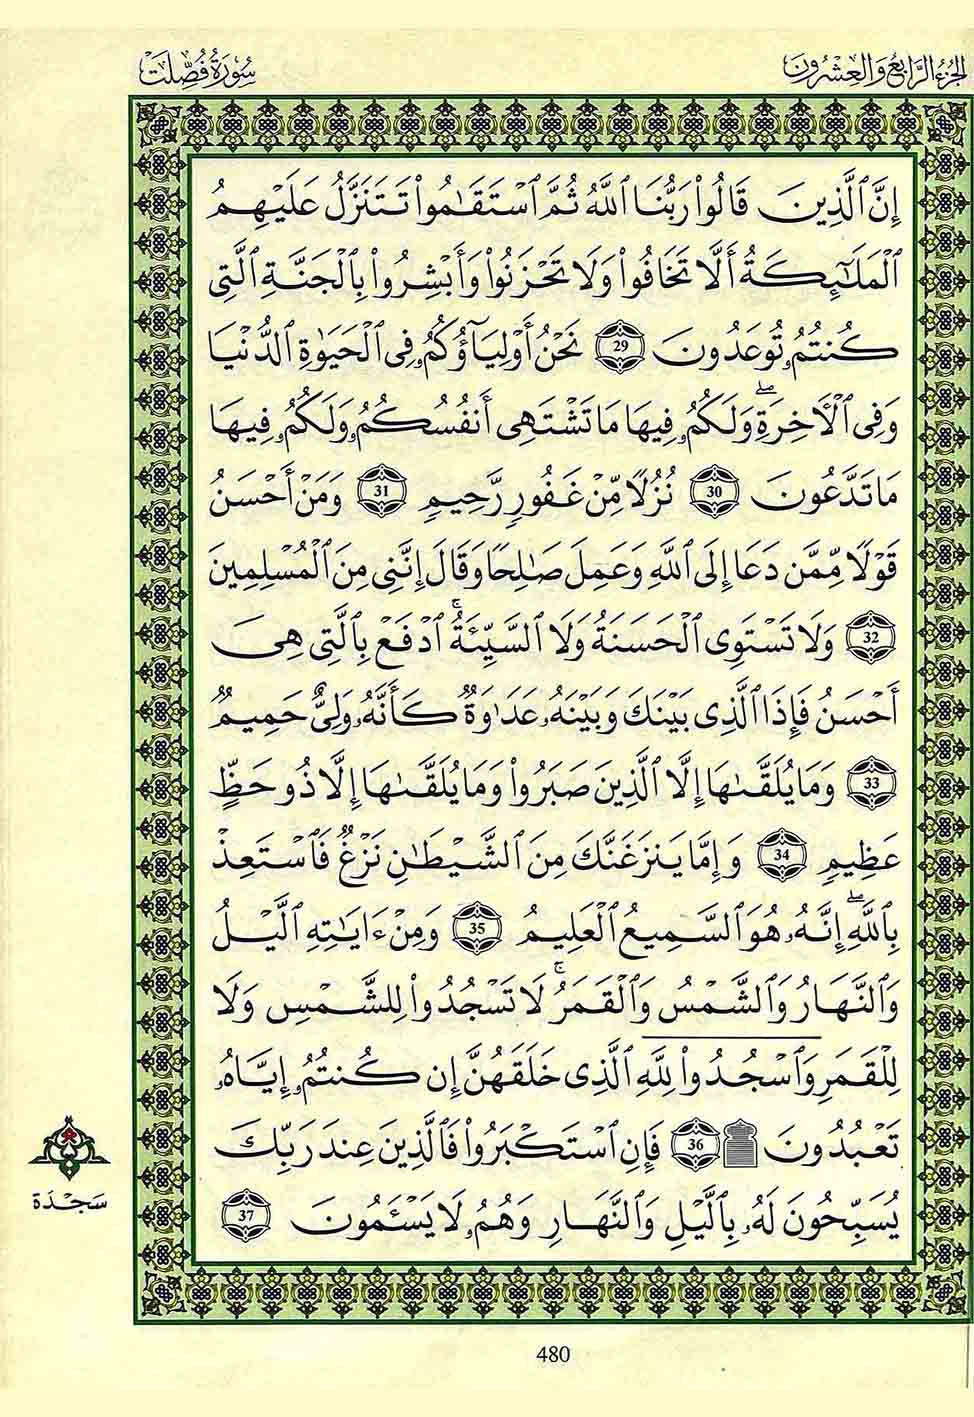 الجزء الرابع والعشرون
سورة فصلت
إِنَّ ٱلَّذِينَ قَالُوا۟ رَبُّنَا ٱللَّهُ ثُمَّ ٱسْتَقَٰمُوا۟ تَتَنَزَّلُ عَلَيْهِمُ
ٱلْمَلَٰٓئِكَةُ أَلَّا تَخَافُوا۟ وَلَا تَحْزَنُوا۟ وَأَبْشِرُوا۟ بِالْجَنَّةِ ٱلَّتِى
كُنتُمُۥ تُوعَدُونَ 29 نَحْنُ أَوْلِيَآؤُكُمُۥ فِى ٱلْحَيَوٰةِ ٱلدُّنْيَا
وَفِى ٱلْأَخِرَةِۖ وَلَكُمُۥ فِيهَا مَا تَشْتَهِى أَنفُسُكُمُۥ وَلَكُمُۥ فِيهَا
مَا تَدَّعُونَ 30 نُزُلًا مِّنْ غَفُورٍ رَّحِيمٍ 31 وَمَنْ أَحْسَنُ
قَوْلًا مِّمَّن دَعَا إِلَى ٱللَّهِ وَعَمِلَ صَٰلِحًا وَقَالَ إِنَّنِى مِنَ ٱلْمُسْلِمِينَ
32 وَلَا تَسْتَوِى ٱلْحَسَنَةُ وَلَا ٱلسَّيِّئَةُۚ ٱدْفَعْ بِالَّتِى هِىَ
أَحْسَنُ فَإِذَا ٱلَّذِى بَيْنَكَ وَبَيْنَهُۥ عَدَٰوَةٌ كَأَنَّهُۥ وَلِىٌّ حَمِيمٌ
33 وَمَا يُلَقَّىٰهَا إِلَّا ٱلَّذِينَ صَبَرُوا۟ وَمَا يُلَقَّىٰهَا إِلَّا ذُو حَظٍّ
عَظِيمٍ 34 وَإِمَّا يَنزَغَنَّكَ مِنَ ٱلشَّيْطَٰنِ نَزْغٌ فَٱسْتَعِذْ
بِاللَّهِۖ إِنَّهُۥ هُوَ ٱلسَّمِيعُ ٱلْعَلِيمُ 35 وَمِنْ ءَايَٰتِهِ ٱلَّيْلُ
وَٱلنَّهَارُ وَٱلشَّمْسُ وَٱلْقَمَرُۚ لَا تَسْجُدُوا۟ لِلشَّمْسِ وَلَا
لِلْقَمَرِ وَٱسْجُدُوا۟ لِلَّهِ ٱلَّذِى خَلَقَهُنَّ إِن كُنتُمُۥ إِيَّاهُۥ
تَعْبُدُونَ 36 فَإِنِ ٱسْتَكْبَرُوا۟ فَٱلَّذِينَ عِندَ رَبِّكَ
يُسَبِّحُونَ لَهُۥ بِالَّيْلِ وَٱلنَّهَارِ وَهُمُۥ لَا يَسْـَٔمُونَ 37
سَجْدَة
480